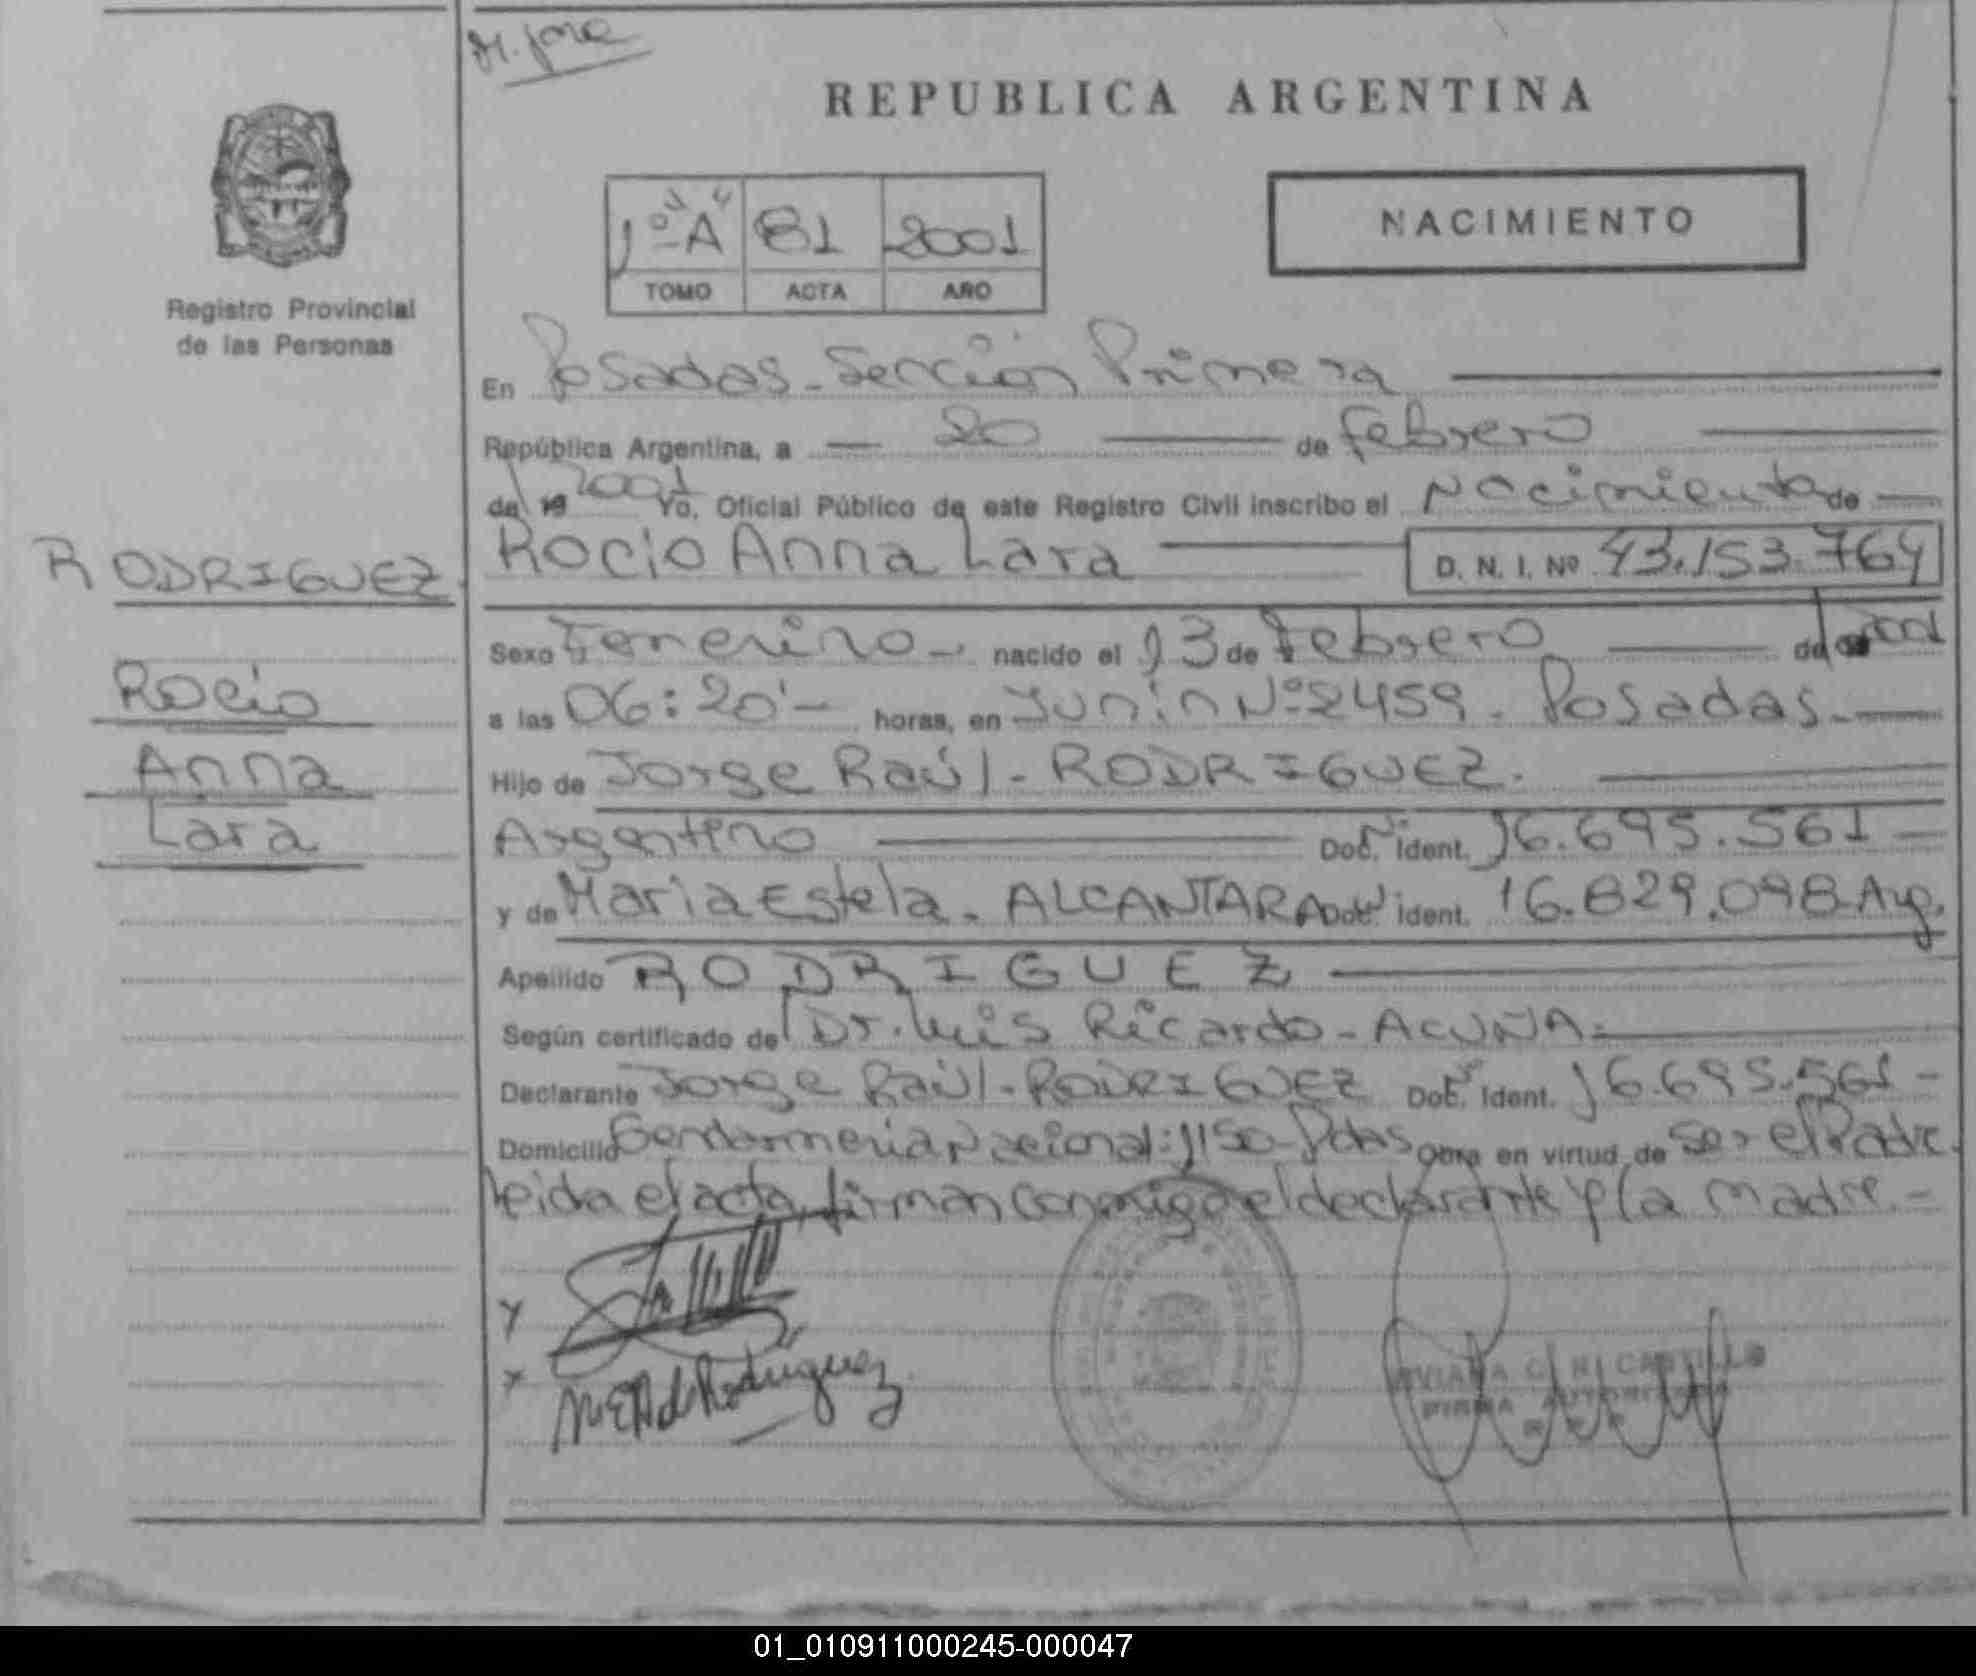 REPUBLICA ARGENTINA
1º "A" 81 2001
TOMO ACTA AÑO
NACIMIENTO
Registro Provincial
de las Personas
RODRIGUEZ
Rocio
Anna
Lara
En Posadas - Sección Primera
República Argentina, a 20 de Febrero
de 19 2001 Yo, Oficial Público de este Registro Civil inscribo el Nacimiento de
Rocio Anna Lara D. N. I. Nº 43.153.764
Sexo Femenino - nacido el 13 de Febrero de 2001
a las 06:20'- horas, en Junin Nº 2459. Posadas.-
Hijo de Jorge Raúl - RODRIGUEZ.
Argentino Doc. Ident. 16.695.561 -
y de Maria Estela. ALCANTARA Doc. Ident. 16.829.098 Arg.
Apellido RODRIGUEZ
Según certificado de Dr. Luis Ricardo - ACUÑA.-
Declarante Jorge Raúl - RODRIGUEZ Doc. Ident. 16.695.561 -
Domicilio Gendarmeria Nacional: 1150 - Pdas Obra en virtud de Ser el Padre
leida el acta, firman conmigo el declarante y la madre.-
M E A de Rodriguez
CASTILLO
FIRMA AUTORIZADA
01_010911000245-000047